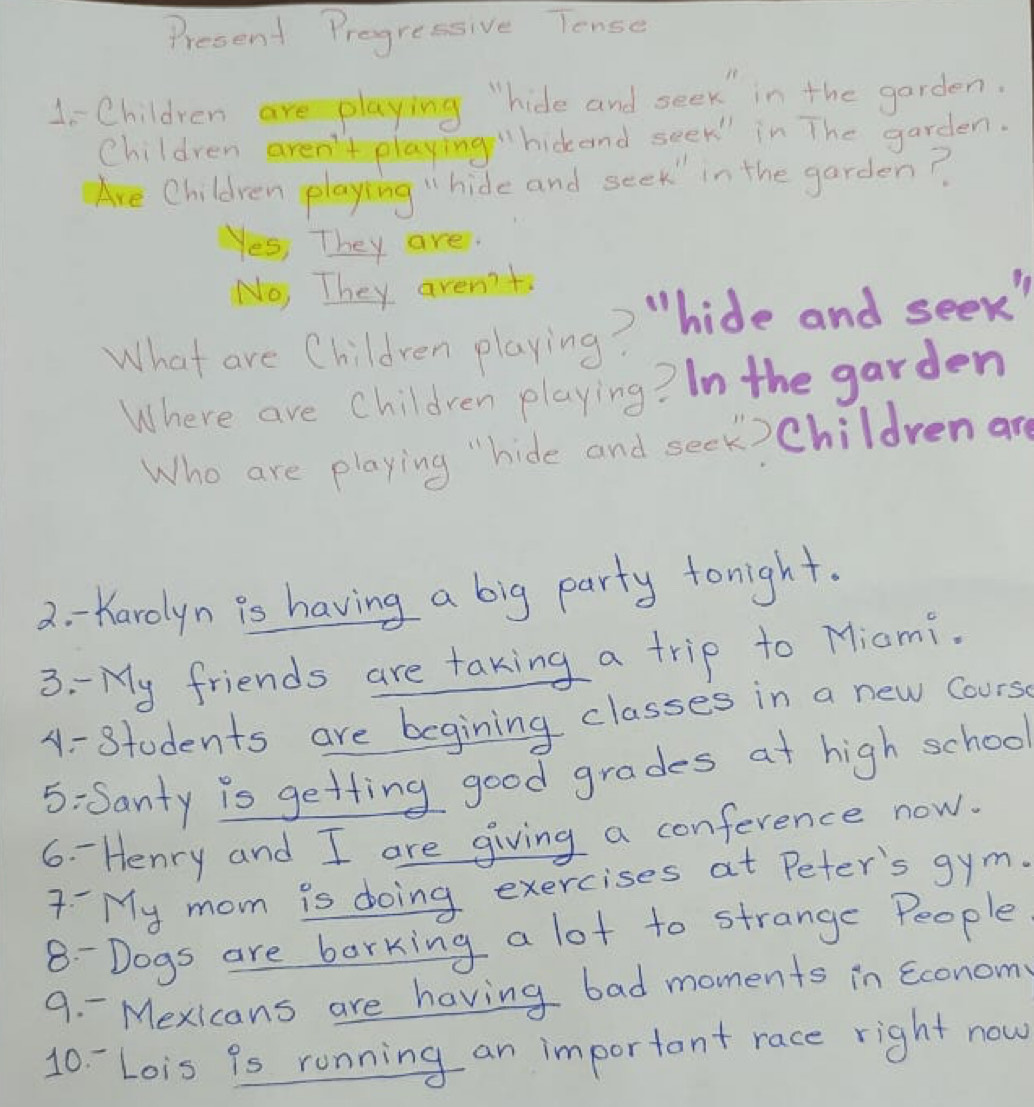 Present Progressive Tense
1.- Children are playing "hide and seek" in the garden.
Children aren't playing "hide and seek" in The garden.
Are Children playing "hide and seek" in the garden?
Yes, They are.
No, They aren't.
What are Children playing? "hide and seek"
Where are Children playing? In the garden
Who are playing "hide and seek"? Children are
2.- Karolyn is having a big party tonight.
3.- My friends are taking a trip to Miami.
4.- Students are begining classes in a new Cours
5.- Santy is getting good grades at high school
6.- Henry and I are giving a conference now.
7.- My mom is doing exercises at Peter's gym.
8.- Dogs are barking a lot to strange People.
9.- Mexicans are having bad moments in Economy
10.- Lois is running an important race right now